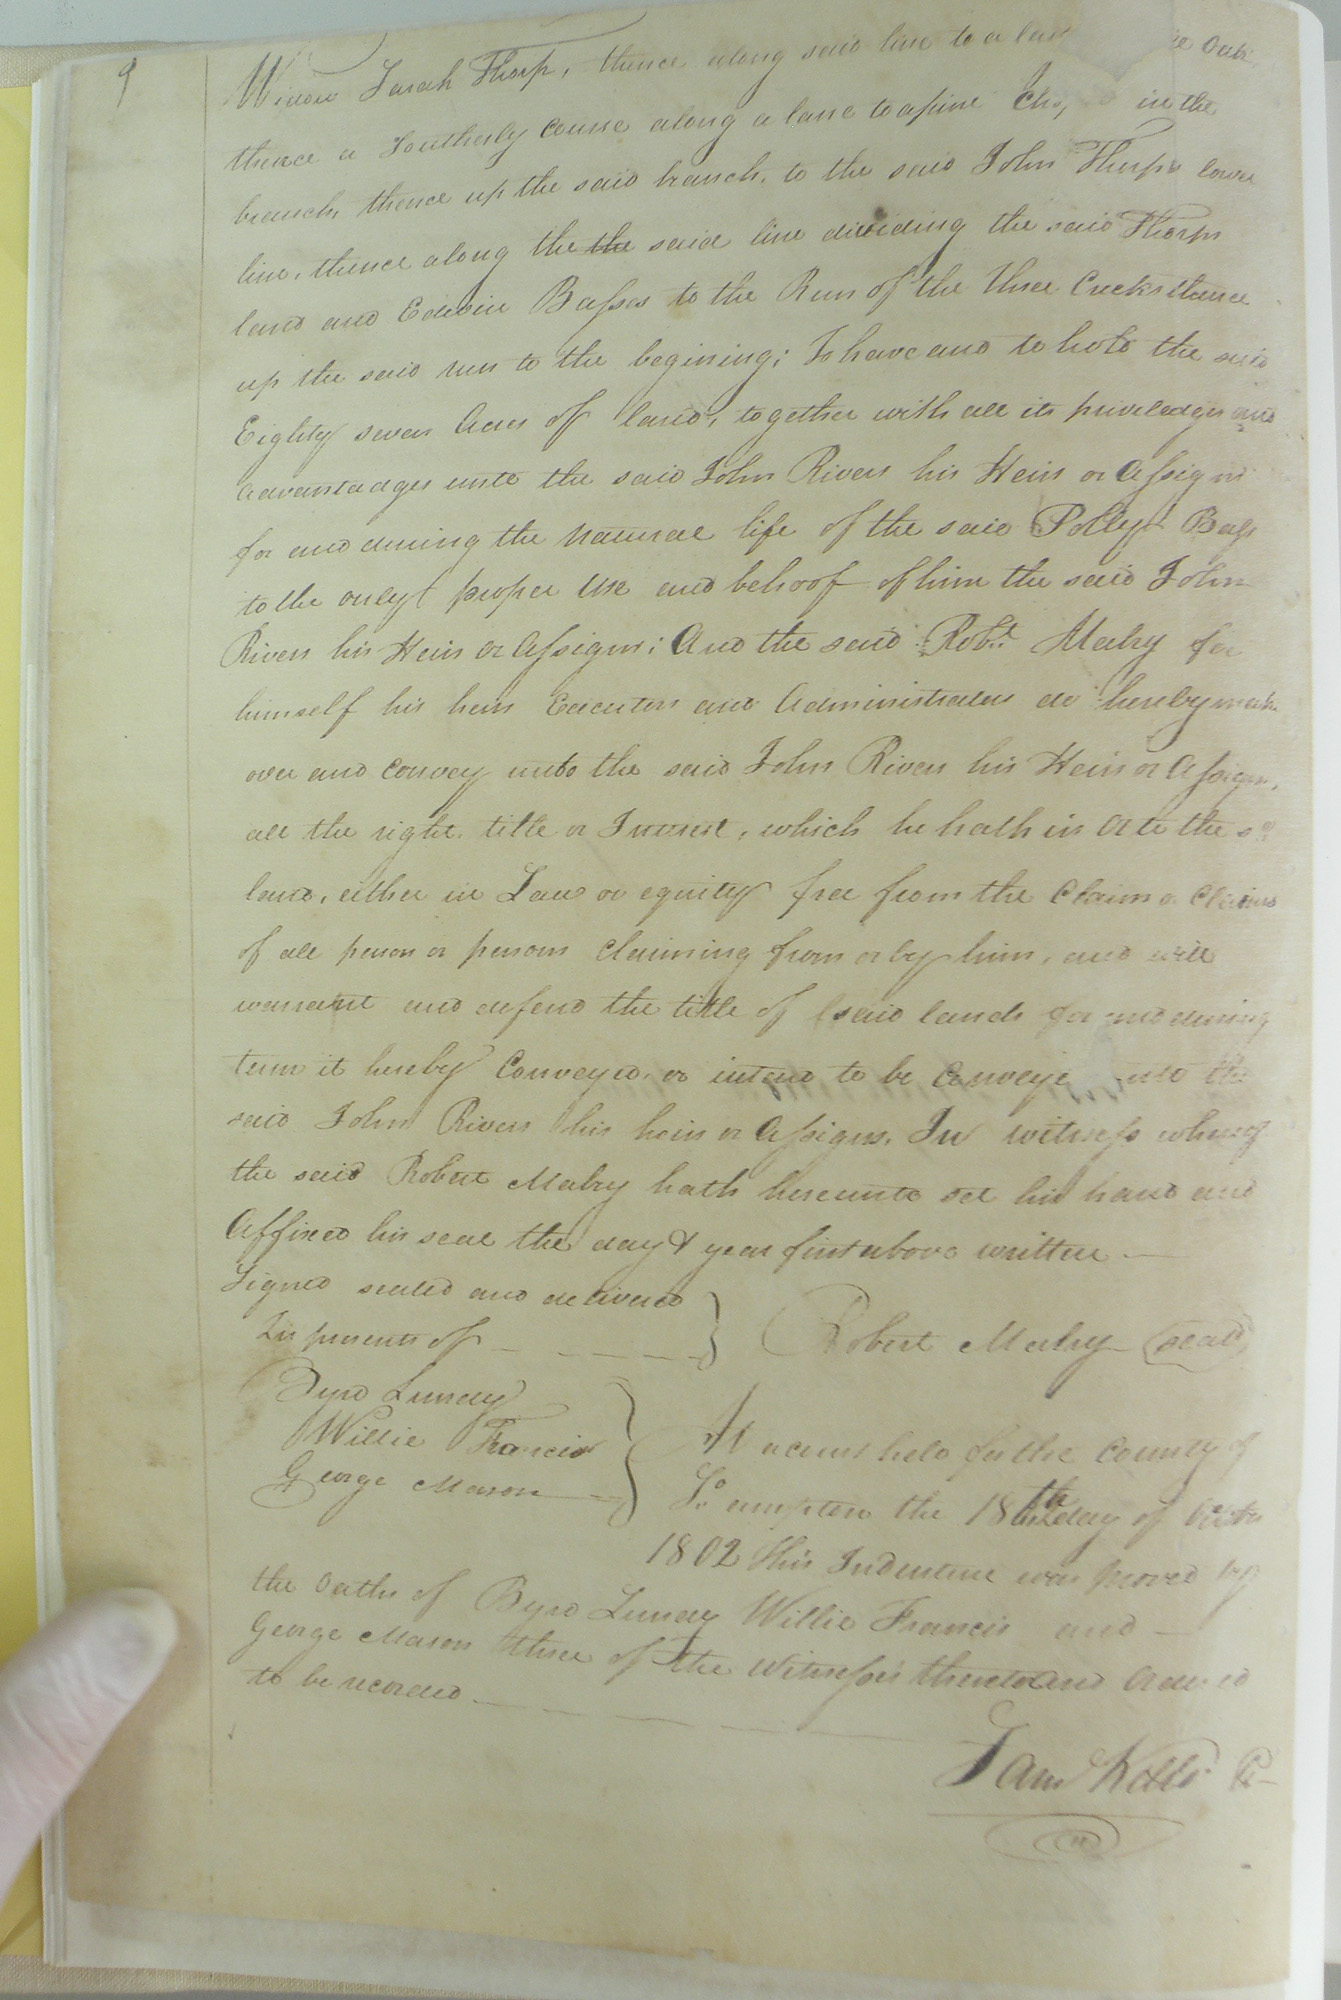 9
Widow Sarah Tharp, thence along said line to a
thence a Southerly course along a lane to a pine in the
branch, thence up the said branch, to the said John Tharps lower
line, thence along the the said line dividing the said Tharps
land and Edwin Basses to the Run of the three Creeks thence
up the said run to the begining; To have and to hold the said
Eighty seven Acres of land, together with all its priviledges and
advantadges unto the said John Rivers his Heirs or Assigns
for and during the natural life of the said Polly Bass
to the only proper use and behoof of him the said John
Rivers his Heirs or Assigns; And the said Robt. Mabry for
himself his heirs Executors and Administrators do hereby make
over and convey unto the said John Rivers his Heirs or Assigns,
all the right, title or Interest, which he hath in or to the sd.
land, either in Law or equity free from the Claim or Claims
of all person or persons claiming from or by him, and will
warrant and defend the title of said lands for and during
term it hereby Conveyed, or intend to be Conveye unto the
said John Rivers his heirs or Assigns. In witness whereof
the said Robert Mabry hath hereunto set his hand and
Affixed his seal the day & year first above written —
Signed sealed and delivered
In presents of — — — —
Robert Mabry (seal)
Byrd Lunday
Willie Francis
George Mason
At a court held for the County of
So. ampton the 18th day of
1802 This Indenture was proved by
the oaths of Byrd Lunday Willie Francis and —
George Mason three of the Witnesses thereto and Ordered
to be recorded — — — —
Saml Kello